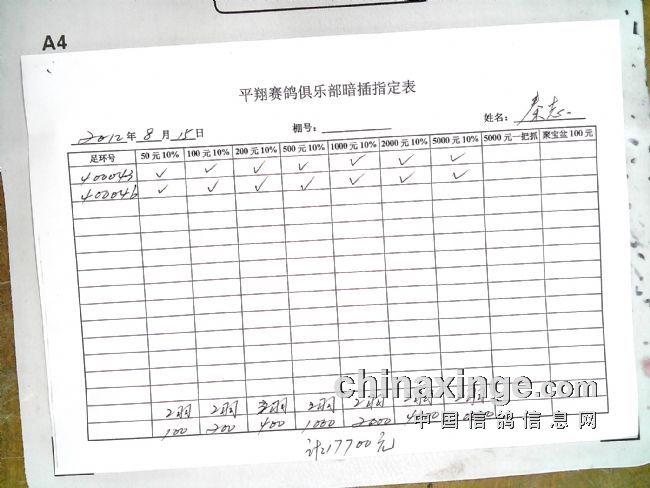 A4
平翔赛鸽俱乐部暗插指定表
2012年8月15日 棚号： 姓名：秦志
足环号 50元10% 100元10% 200元10% 500元10% 1000元10% 2000元10% 5000元10% 5000元一把抓 聚宝盆100元
400043 ✓ ✓ ✓ ✓ ✓ ✓ ✓
400046 ✓ ✓ ✓ ✓ ✓ ✓ ✓
2羽 2羽 2羽 2羽 2羽 2羽 2羽
100 200 400 1000 2000
计:17700元
chinaxinge.com
中国信鸽信息网